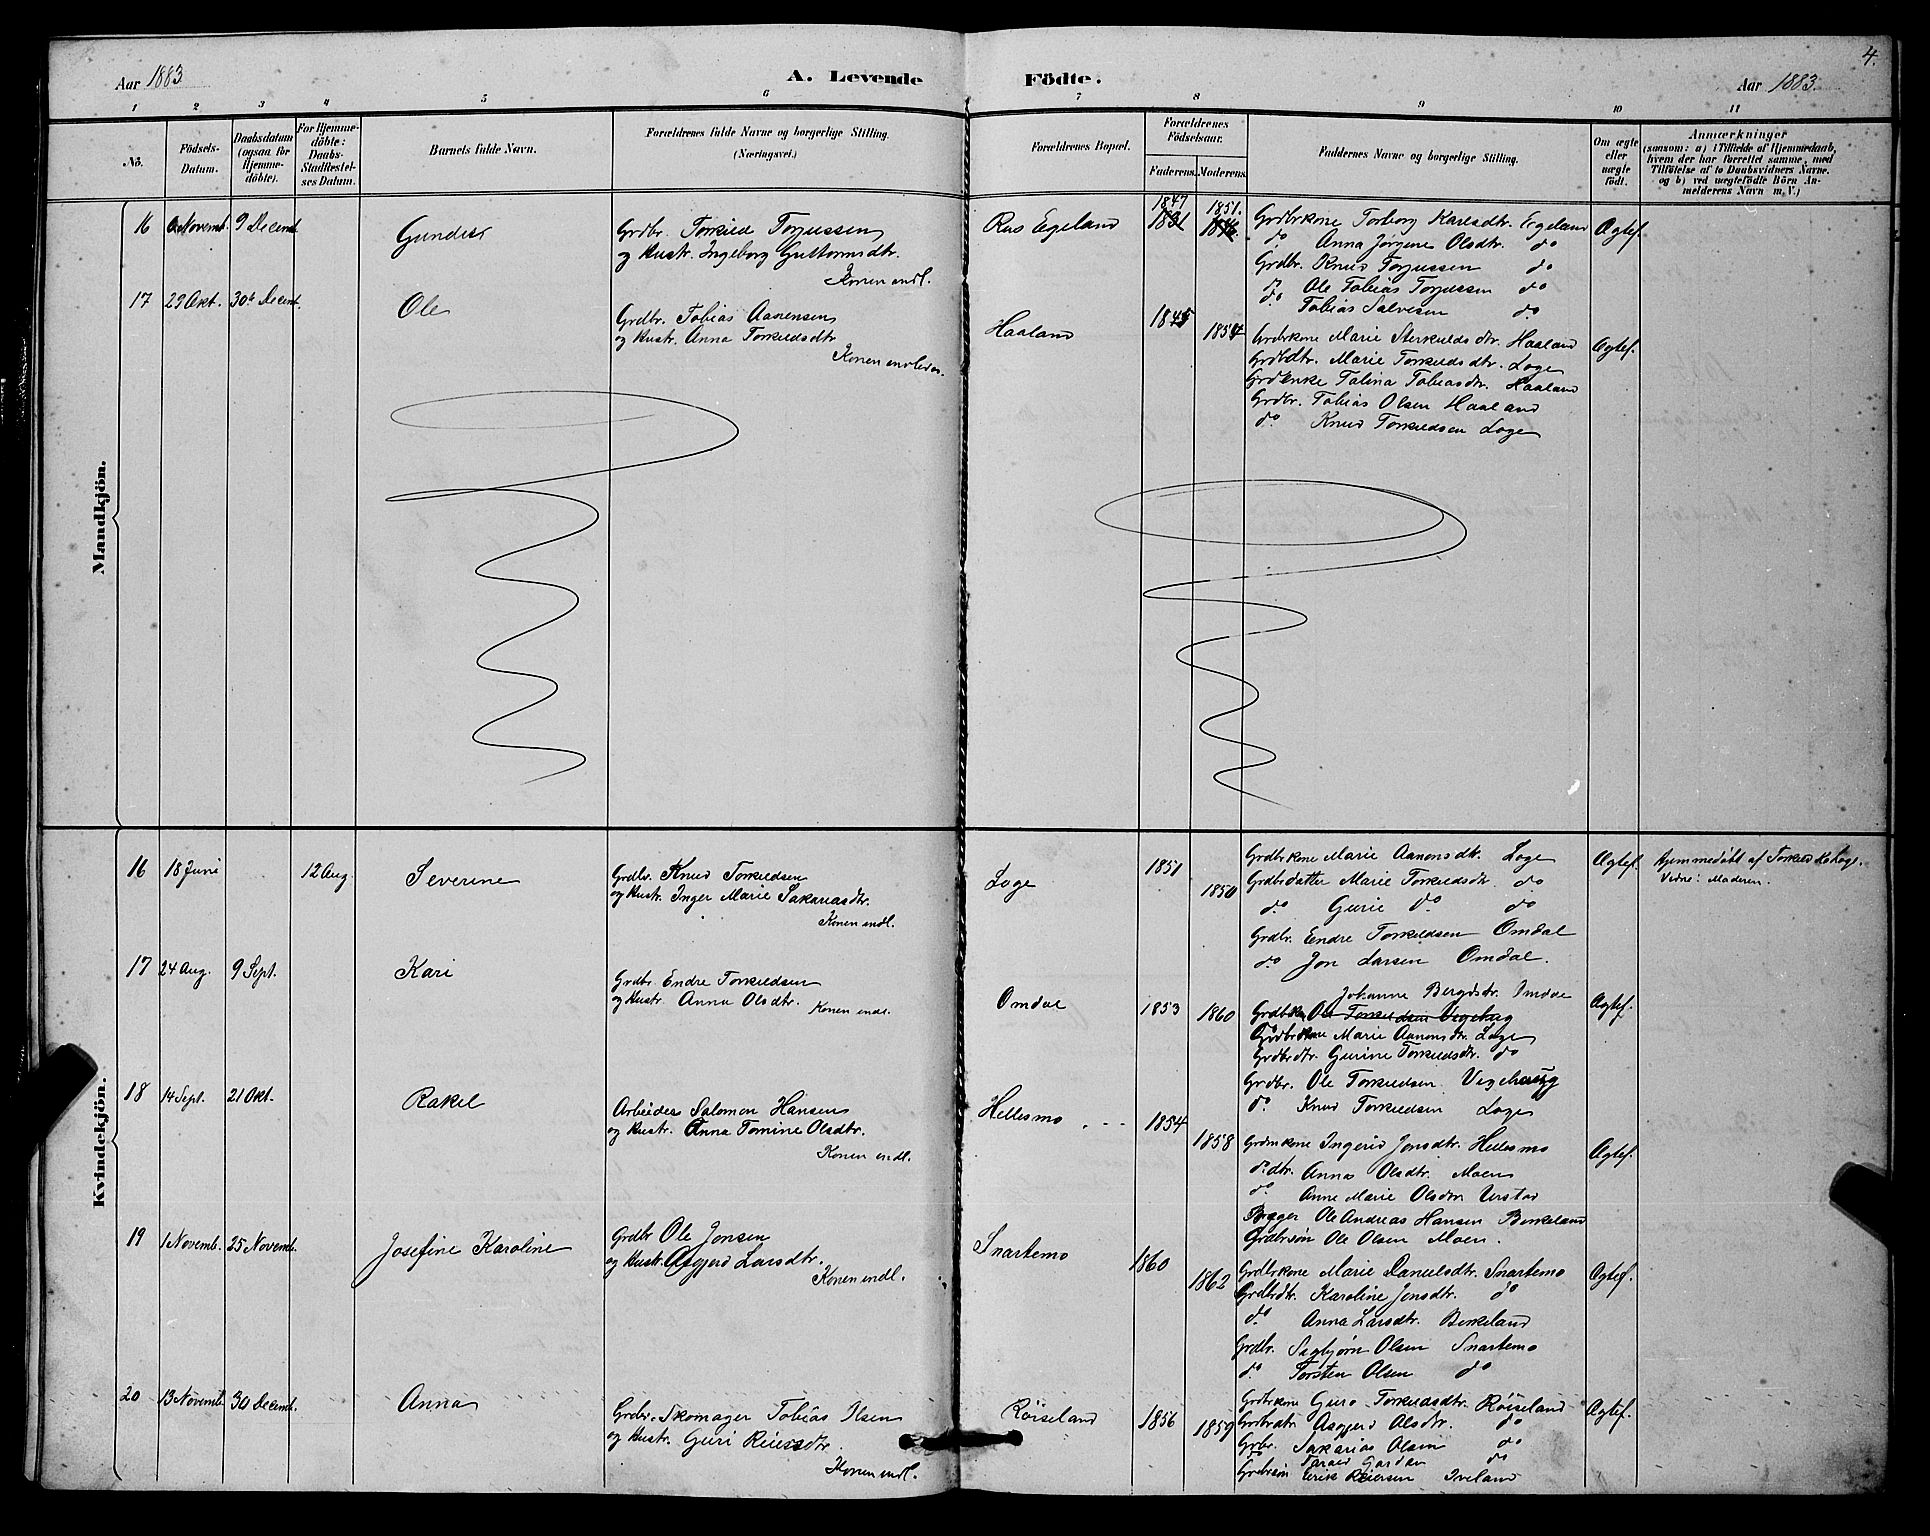 4.
Aar 1883
A. Levende Födte.
Aar 1883.
1 2 3 4 5 6 7 8 9 10 11
No.
Födsels-Datum.
Daabsdatum (ogsaa for Hjemme-döbte).
For Hjemme-döbte: Daabs-Stadfæstel-ses Datum.
Barnets fulde Navn.
Forældrenes fulde Navne og borgerlige Stilling.
(Næringsvei.)
Forældrenes Bopæl.
Forældrenes Födselsaar.
Faderens. Moderens.
Faddernes Navne og borgerlige Stilling.
Om ægte eller uægte födt.
Anmærkninger
(saasom: a) i Tilfælde af Hjemmedaab, hvem der har forrettet samme, med Tilföielse af to Daabsvidners Navne. og b) ved uægtefödte Börn An-melderens Navn m. V.)
Mandkjön.
16 Novemb. 9 Decemb.
Gunder
Grdbr. Torkild Torjussen
og Hustr. Ingeborg Guttormsdtr.
Konen indl.
Ras Egeland
1847 1851.
Grdbrkone Torborg Karlsdtr. Egeland
do Anna Jørgine Olsdtr. do
Grdbr. Knud Torjussen do
do Ole Tobias Torjussen do
do Tobias Salvesen do
Ægtef.
17 29 Okt. 30te Decemb.
Ole
Grdbr. Tobias Aanensen
og Hustr. Anna Torkildsdtr
Konen indledes.
Haaland
1845 1854
Grdbrkone Marie Sterkulds dtr. Haaland
Grdbdtr. Marie Torkildsdtr. Loge
Grdenke Talina Tobiasdtr. Haaland
Grdbr. Tobias Olsen Haaland
do Knud Torkildsen Loge
Ægtef.
Kvindekjön.
16 18 Juni 12 Aug.
Severine
Grdbr. Knud Torkildsen
og Hustr. Inger Marie Sakariasdtr.
Konen indl.
Loge
1851 1850
Grdbrkone Marie Aanonsdtr. Loge
Grdbrdatter Marie Torkildsdtr. do
do Gurie do do
Grdbr. Endre Torkildsen Omdal
do Jon Larsen Omdal.
Ægtef.
Hjemmedøbt af Torkild K. Loge.
Vidne: Moderen.
17 24 Aug. 9 Sept.
Kari
Grdbr. Endre Torkildsen
og Hustr. Anna Olsdtr. Konen indl.
Omdal
1853 1860
Johanne Bergitdtr. Omdal
Grdbrkn Ole Torkildsen Vegehaug
Grdbrkone Marie Aanonsdtr. Loge
Grdbrdtr. Gurine Torkildsdtr. do
Grdbr. Ole Torkildsen Vegehaug
do Knud Torkildsen Loge
Ægtef.
18 14 Sept. 21 Okt.
Rakel
Arbeider Salomon Hansen
og Hustr. Anna Tomine Olsdtr.
Konen indl.
Hellesmo
1854 1858
Grdmkone Ingerid Jonsdtr. Hellesmo
do dtr. Anna Olsdtr. Moen
do Anne Marie Olsdtr Urstad
Ole Andreas Hansen Birkeland
Grdbrsøn Ole Olsen Moen.
Ægtef.
19 1 Novemb. 25 Novemb.
Josefine Karoline
Grdbr Ole Jonsen
og Hustr. Asgjerd Larsdtr.
Konen indl.
Snartemo
1860 1862
Grdbrkone Marie Danielsdtr. Snartemo
Grdbrdtr. Karoline Jonsdtr. do
do Anna Larsdtr. Birkeland
Grdbr. Sigbjørn Olsen Snartemo
do Torsten Olsen do
Ægtef.
20 13 Novemb. 30 Decemb.
Anna
Grdbr. Skomager Tobias Olsen
og Hustr. Guri Reiersdtr.
Konen indl.
Røiseland
1856 1859
Grdbrkone Guro Torkildsdtr. Røiseland
Grdbrdtr. Asgjerd Olsdtr. do
Grbr. Sakarias Olsen do
do
Grdbrsøn Eirik Reiersen Iveland
Ægtef.